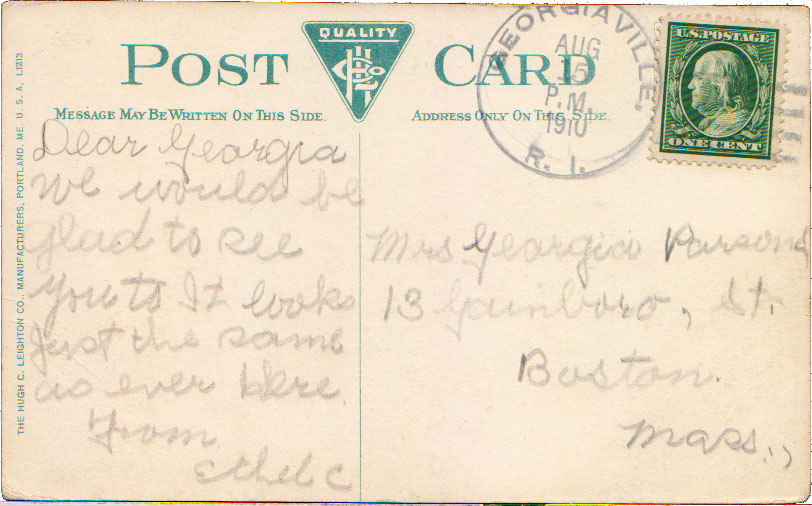 THE HUGH C. LEIGHTON CO., MANUFACTURERS, PORTLAND, ME. U. S. A. L1213
POST CARD
QUALITY
HCL Co
MESSAGE MAY BE WRITTEN ON THIS SIDE.
ADDRESS ONLY ON THIS SIDE.
GEORGIAVILLE,
AUG
15
P.M.
1910
R. I.
U.S. POSTAGE
ONE CENT
Dear Georgia
We would be
glad to see
you to It looks
just the same
as ever here
From
Ethel C
Mrs Georgia Parsons
13 Gainboro, St.
Boston.
Mass.,